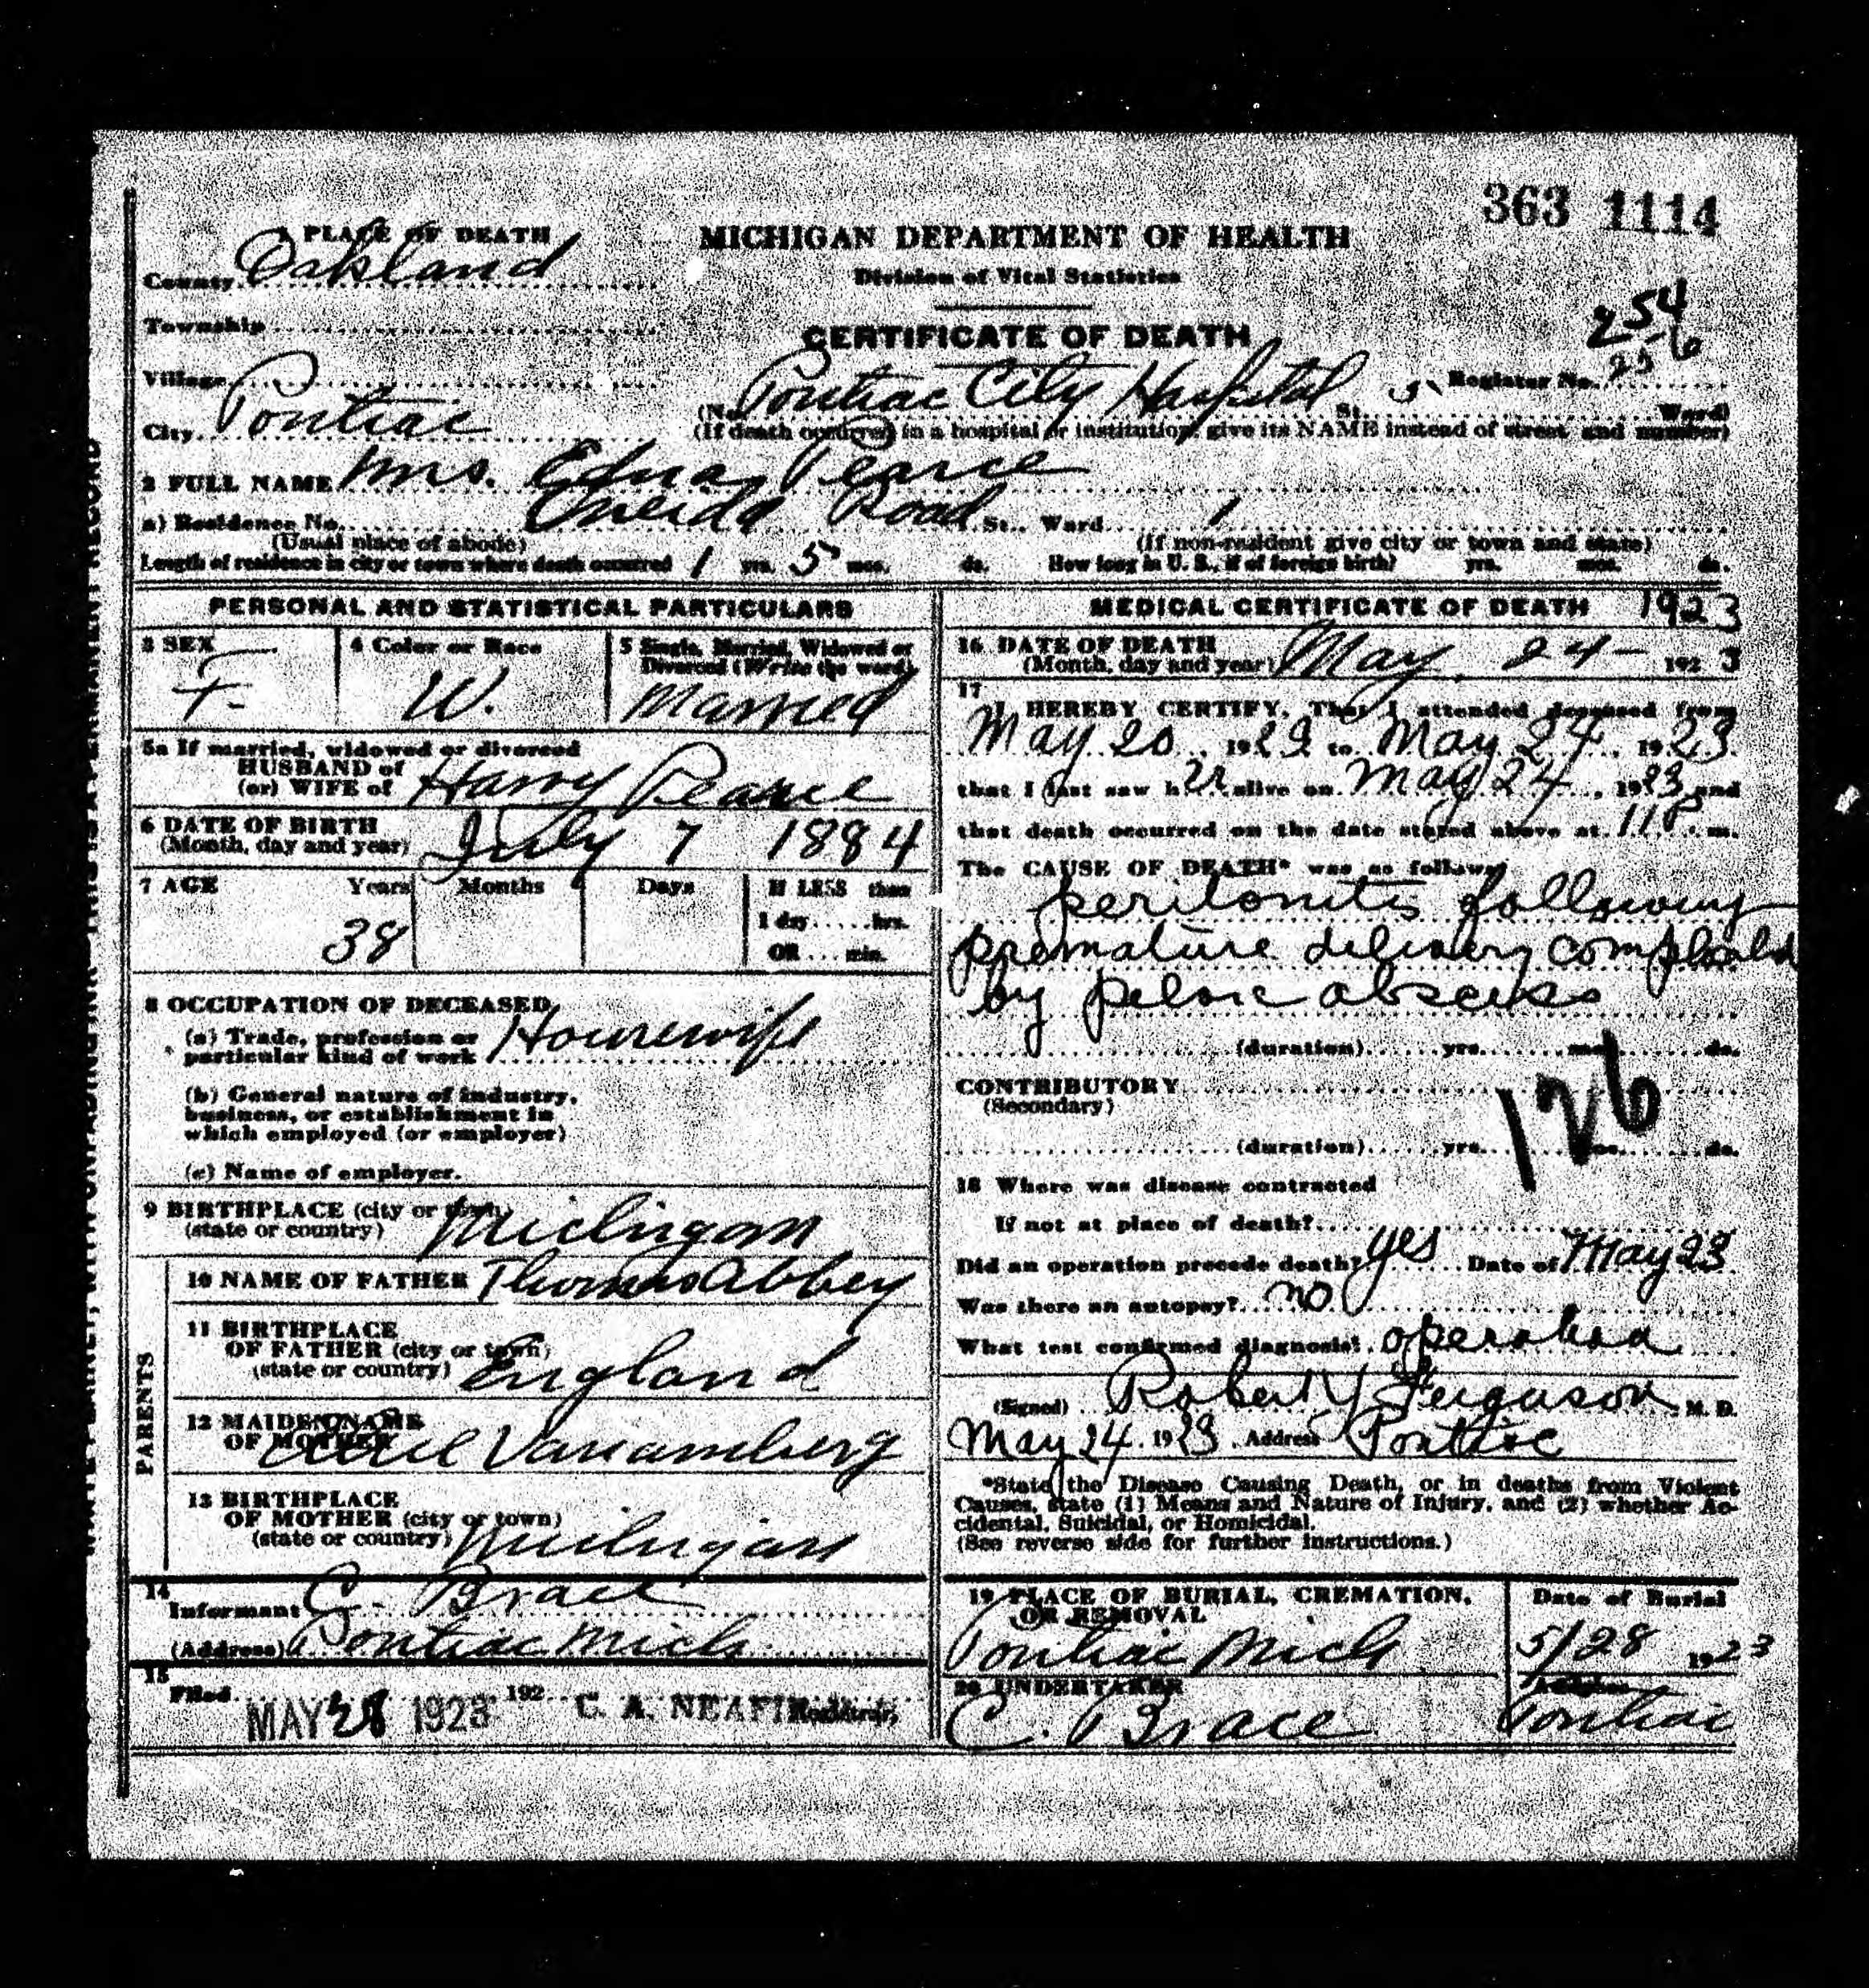 363 1114
1 PLACE OF DEATH
MICHIGAN DEPARTMENT OF HEALTH
County Oakland
Division of Vital Statistics
Township
CERTIFICATE OF DEATH
254
Village
Register No. 256
City Pontiac
(No. Pontiac City Hospital St. 5 Ward)
(If death occurred in a hospital or institution, give its NAME instead of street and number)
2 FULL NAME Mrs. Edna Pearce
a) Residence No. Oneida Road St., Ward 1
(Usual place of abode)
(If non-resident give city or town and state)
Length of residence in city or town where death occurred 1 yrs. 5 mos. ds. How long in U. S., if of foreign birth? yrs. mos. ds.
PERSONAL AND STATISTICAL PARTICULARS
3 SEX
F.
4 Color or Race
W.
5 Single, Married, Widowed or
Divorced (Write the word)
Married
5a If married, widowed or divorced
HUSBAND of
(or) WIFE of Harry Pearce
6 DATE OF BIRTH
(Month, day and year) July 7 1884
7 AGE Years Months Days If LESS than
1 day......hrs.
38
OR ... min.
8 OCCUPATION OF DECEASED
(a) Trade, profession or
particular kind of work Housewife
(b) General nature of industry,
business, or establishment in
which employed (or employer)
(c) Name of employer.
9 BIRTHPLACE (city or town)
(state or country) Michigan
PARENTS
10 NAME OF FATHER Thomas Abbey
11 BIRTHPLACE
OF FATHER (city or town)
(state or country) England
12 MAIDEN NAME
OF MOTHER Vanamberg
13 BIRTHPLACE
OF MOTHER (city or town)
(state or country) Michigan
14
Informant C. Brace
(Address) Pontiac Mich
15
Filed MAY 28 1923 192 C. A. Registrar
MEDICAL CERTIFICATE OF DEATH 1923
16 DATE OF DEATH
(Month, day and year) May 24- 1923
17
I HEREBY CERTIFY, That I attended deceased from
May 20, 1923 to May 24, 1923
that I last saw her alive on May 24, 1923 and
that death occurred on the date stated above at 11 P. m.
The CAUSE OF DEATH* was as follows
peritonitis following
premature delivery complicated
by pelvic abscess
(duration) yrs. mos. ds.
CONTRIBUTORY
(Secondary)
126
(duration) yrs. mos. ds.
18 Where was disease contracted
If not at place of death?
Did an operation precede death? yes Date of May 23
Was there an autopsy? no
What test confirmed diagnosis?
(Signed) Robert Y Ferguson M. D.
May 24, 1923, Address Pontiac
*State the Disease Causing Death, or in deaths from Violent
Causes, state (1) Means and Nature of Injury, and (2) whether Ac-
cidental, Suicidal, or Homicidal.
(See reverse side for further instructions.)
19 PLACE OF BURIAL, CREMATION,
OR REMOVAL
Pontiac Mich
Date of Burial
5/28 1923
20 UNDERTAKER
C. Brace
Pontiac